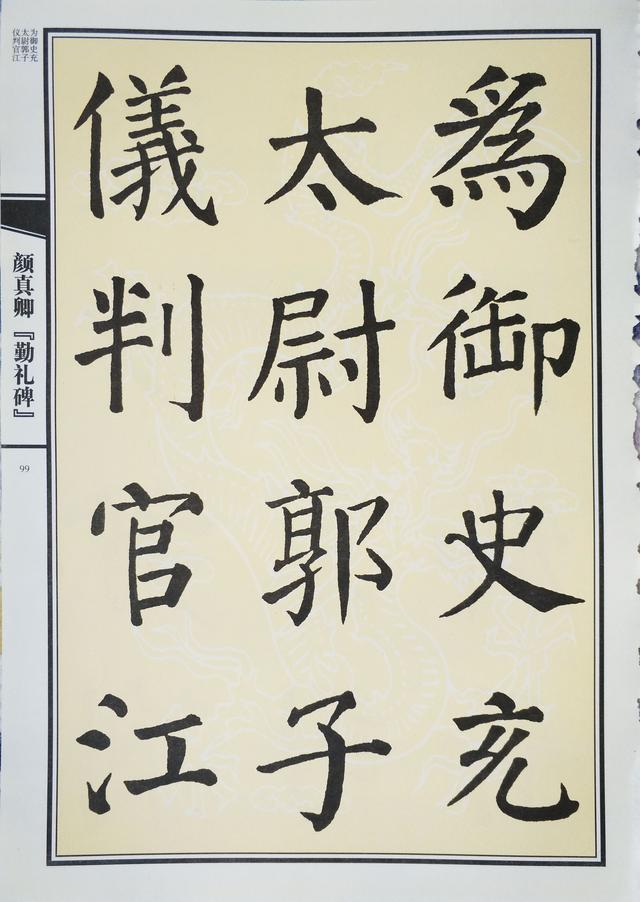 為御史充
太尉郭子
儀判官江
为御史充
太尉郭子
仪判官江
颜真卿『勤礼碑』
99